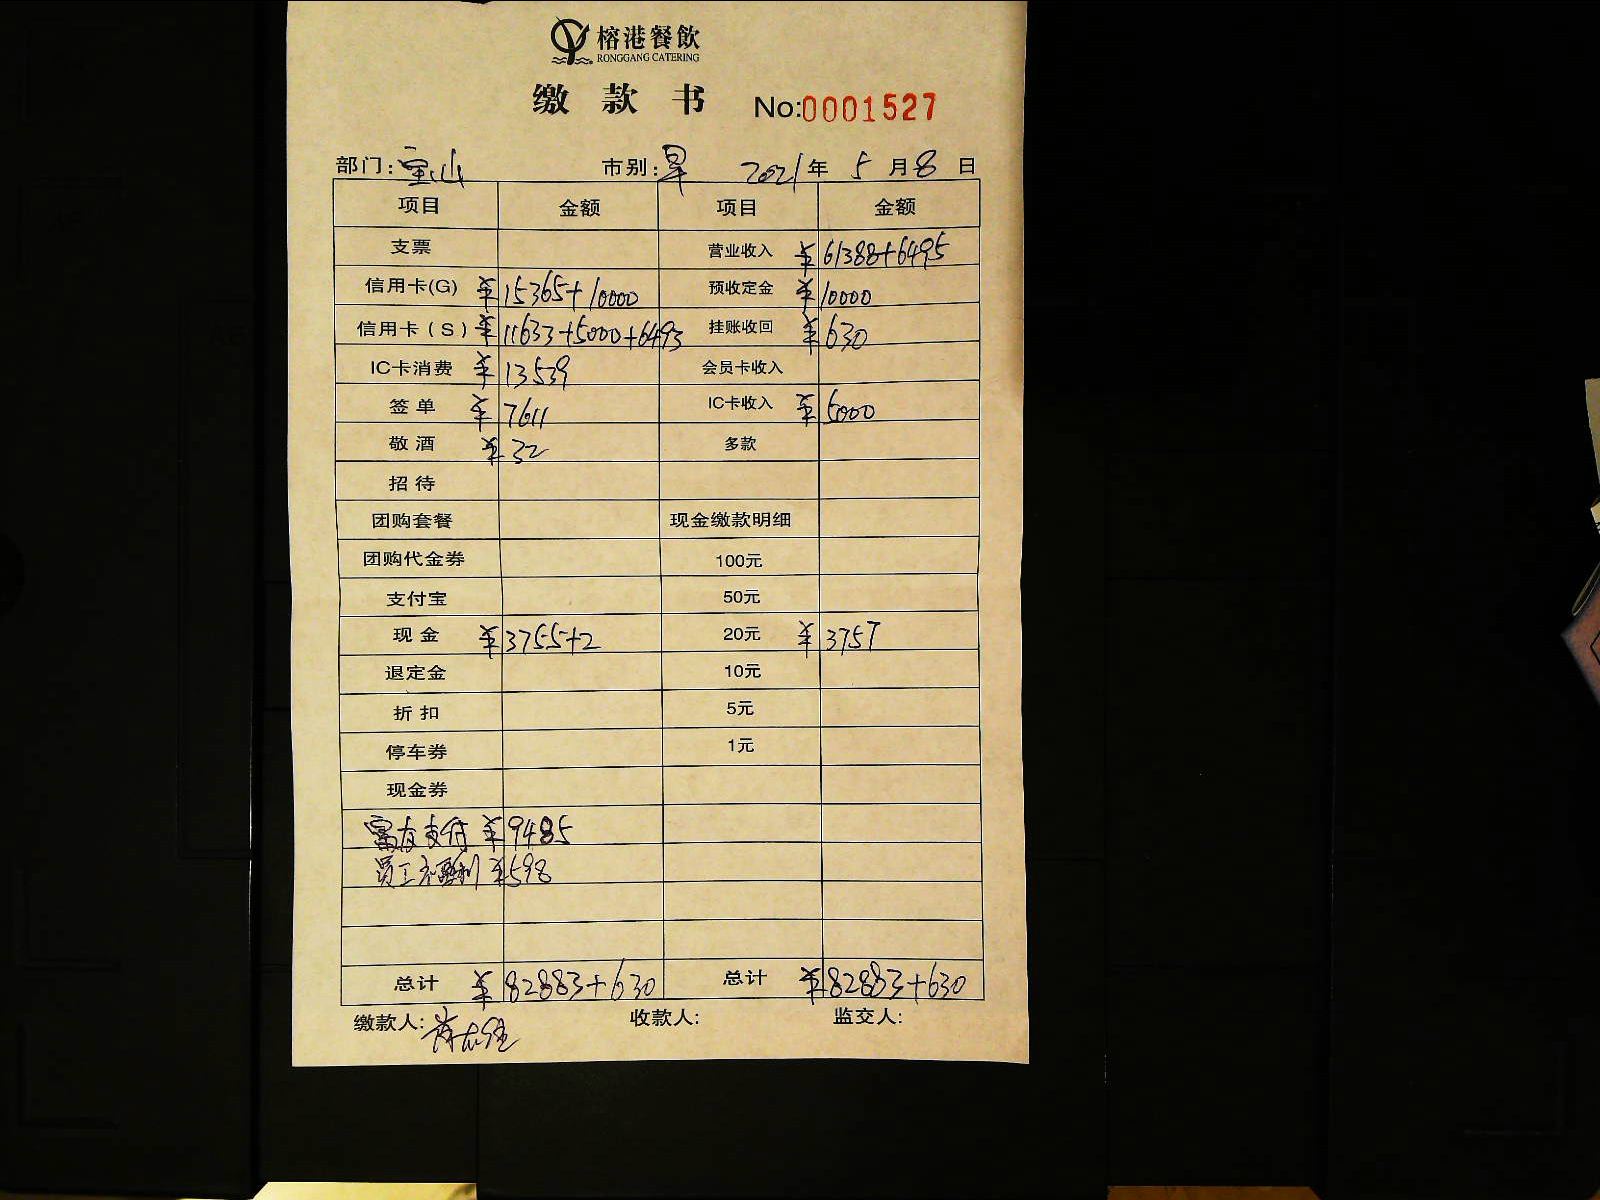 榕港餐飲
RONGGANG CATERING
缴款书 No:0001527
部门:宝山 市别:早 2021年5月8日
项目 金额 项目 金额
支票 营业收入 ¥61388+6495
信用卡(G) ¥15365+10000 预收定金 ¥10000
信用卡(S) ¥11633+5000+6493 挂账收回 ¥630
IC卡消费 ¥13539 会员卡收入
签单 ¥7611 IC卡收入 ¥5000
敬酒 ¥32 多款
招待
团购套餐 现金缴款明细
团购代金券 100元
支付宝 50元
现金 ¥3755+2 20元 ¥3757
退定金 10元
折扣 5元
停车券 1元
现金券
富友支付 ¥9485
员工福利 ¥598
总计 ¥82883+630 总计 ¥82883+630
缴款人: 收款人: 监交人: